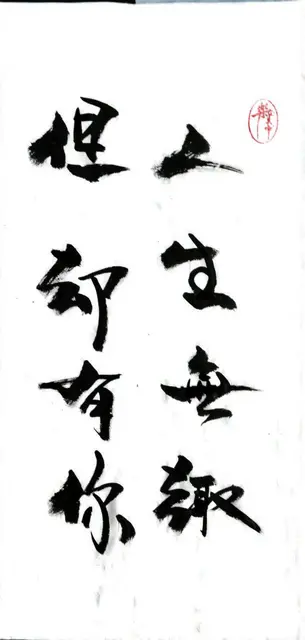 人生無趣
但却有你